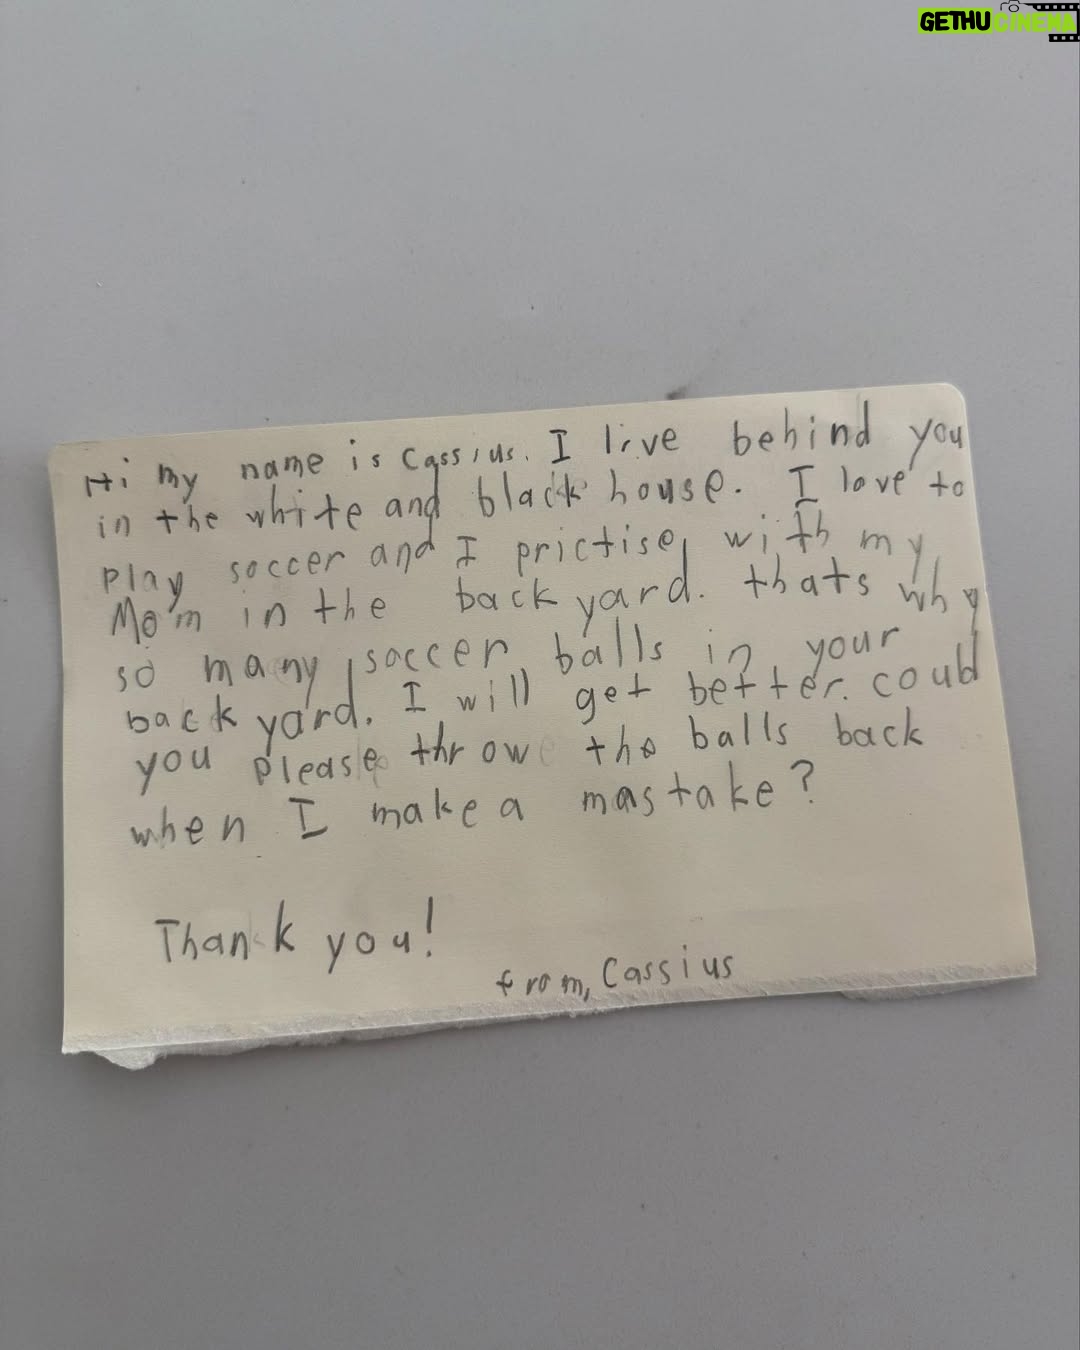 GETHUCINEMA
Hi my name is Cassius. I live behind you
in the white and black house. I love to
play soccer and I prictise with my
Mom in the back yard. thats why
so many soccer balls in your
back yard. I will get better. could
you please throw the balls back
when I make a mastake?
Thank you!
from, Cassius